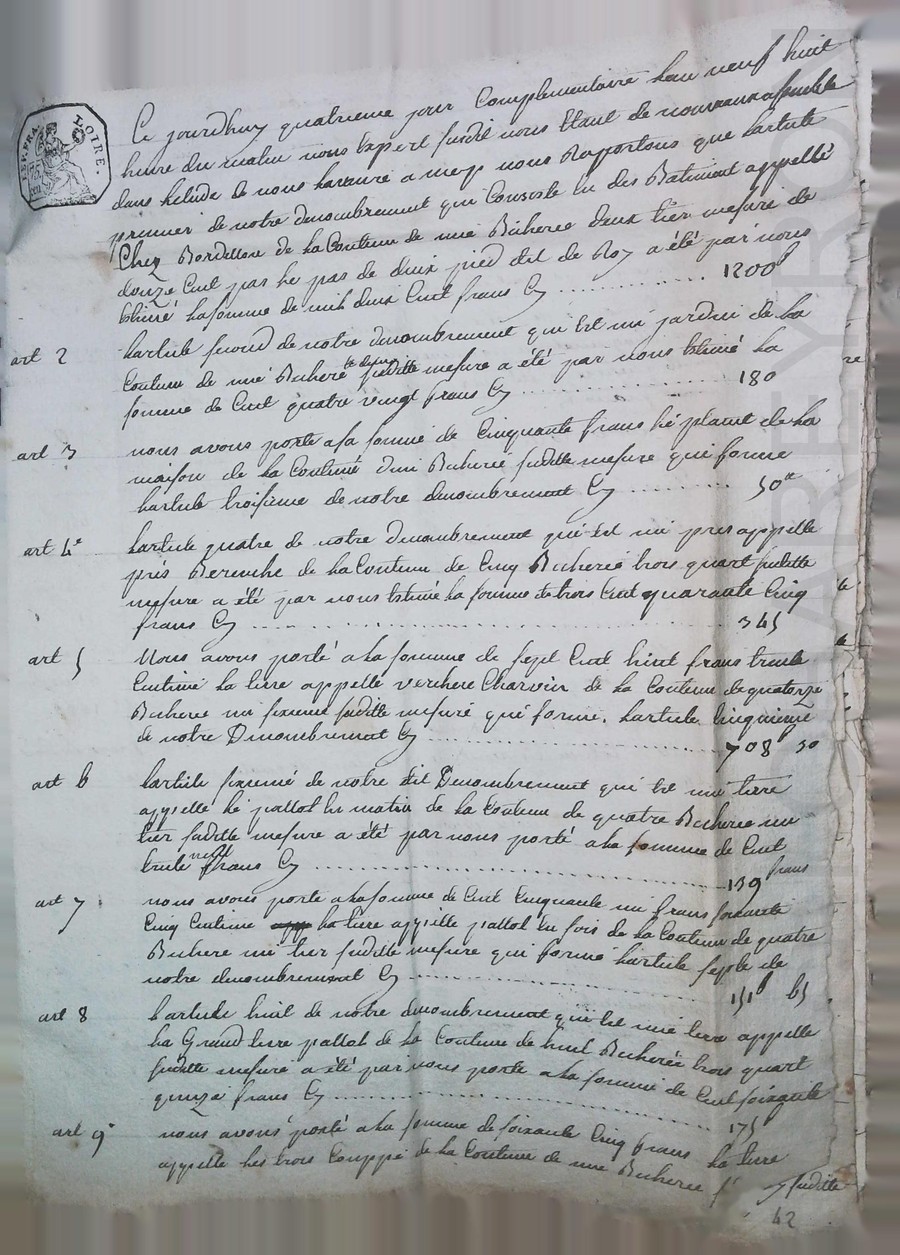 REP. FRA. LOIRE.
Ce jourdhuy quatrieme jour Complementaire han neuf huit
heure du matin nous Expert susdit nous Etant de nouveaux assemblé
dans helude de nous honnoré a mep nous Raportons que hartule
premier de notre denombrement qui Consiste En des Batiment appellé
Chez Bordillon de ha Contenu de une Bicherée deux tier mesure de
douze Cent pas he pas de deux pied dit de Roy a été par nous
Estimé ha somme de mil deux Cent frans Cy ............ 1200
art 2 hartule second de notre denombrement qui Est un jardin de ha
Contenu de une Bicheré susditte mesure a été par nous Estimé ha
somme de Cent quatre vingt frans Cy ............ 180
art 3 nous avons porté aha somme de Cinquante frans hé placeut de ha
maison de ha Contenue d'une Bicherée susditte mesure qui forme
hartule troisieme de notre denombrement Cy ........ 50
art 4e hartule quatre de notre denombrement qui Est un pres appelle
prés Bereuche de ha Contenu de Cinq Bicherée trois quart susditte
mesure a été par nous Estimé ha somme de trois Cent quarante Cinq
frans Cy ............ 345
art 5 Nous avons porté a ha somme de sept Cent huit frans trente
Centime ha terre appellé verchere Charvin de ha Contenu de quatorze
Bicheree un sixieme susditte mesuré qui forme hartule Cinquieme
de notre Denombrement Cy ............ 708 30
art 6 hartule sixiemé de notre dit Denombrement qui Est une terre
appelle hé pallot En matin de ha Contenu de quatre Bicheree un
tier susditte mesure a été par nous porté aha somme de Cent
trente neuf frans Cy ............ 139 frans
art 7 nous avons porté aha somme de Cent Cinquante un frans soixante
Cinq Centime ha terre appelle pallot En soir de ha Contenu de quatre
Bichere un tier susditte mesure qui forme hartule septe de
notre denombrement Cy ............ 151 65
art 8 hartule huit de notre denombrement qui Est une terre appelle
ha Grand terre pallot de ha Contenu de huit Bicherée trois quart
susditte mesure a été par nous porté aha somme de Cent soixante
quinze frans Cy ............ 175
art 9e nous avons porté a ha somme de soixante Cinq frans ha terre
appelle hes trois Couppé de ha Contenu de une Bicheree susditte
42